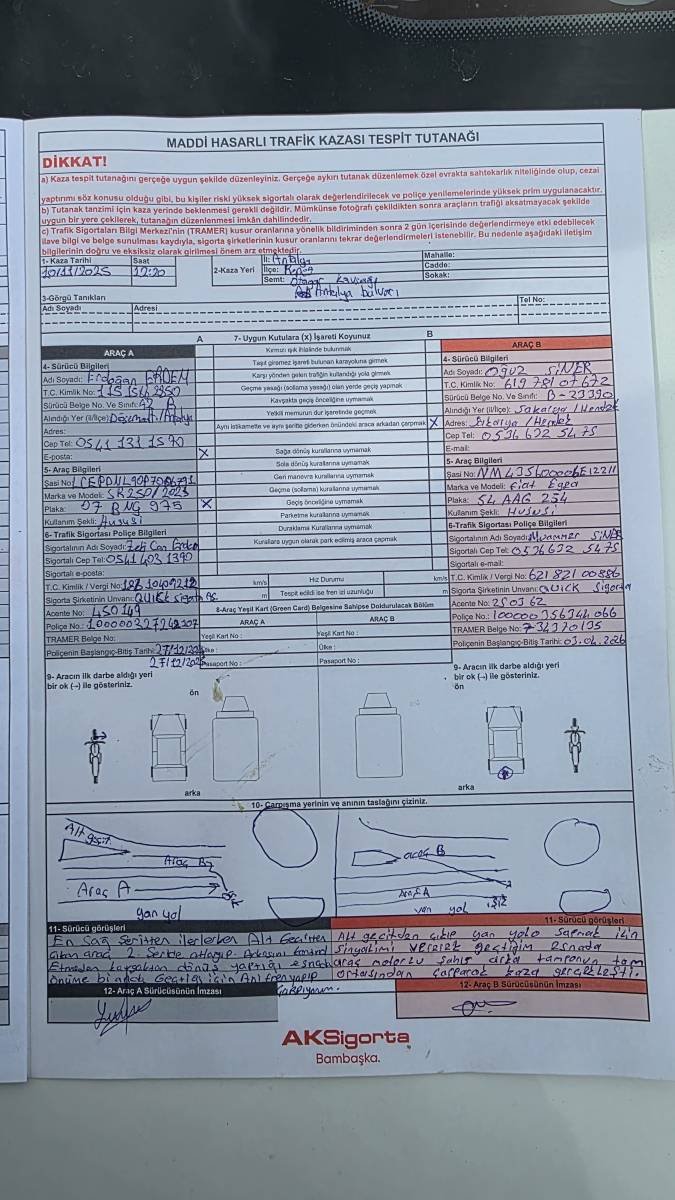 MADDİ HASARLI TRAFİK KAZASI TESPİT TUTANAĞI
DİKKAT!
a) Kaza tespit tutanağını gerçeğe uygun şekilde düzenleyiniz. Gerçeğe aykırı tutanak düzenlemek özel evrakta sahtekarlık niteliğinde olup, cezai
yaptırımı söz konusu olduğu gibi, bu kişiler riski yüksek sigortalı olarak değerlendirilecek ve poliçe yenilemelerinde yüksek prim uygulanacaktır.
b) Tutanak tanzimi için kaza yerinde beklenmesi gerekli değildir. Mümkünse fotoğrafı çekildikten sonra araçların trafiği aksatmayacak şekilde
uygun bir yere çekilerek, tutanağın düzenlenmesi imkân dahilindedir.
c) Trafik Sigortaları Bilgi Merkezi'nin (TRAMER) kusur oranlarına yönelik bildiriminden sonra 2 gün içerisinde değerlendirmeye etki edebilecek
ilave bilgi ve belge sunulması kaydıyla, sigorta şirketlerinin kusur oranlarını tekrar değerlendirmeleri istenebilir. Bu nedenle aşağıdaki iletişim
bilgilerinin doğru ve eksiksiz olarak girilmesi önem arz etmektedir.
1- Kaza Tarihi Saat 2-Kaza Yeri İl: Antalya Mahalle:
10/11/2025 12:20 İlçe: Kepez Cadde:
Semt: Otogar Kavşağı Sokak:
Antalya bulvarı
3-Görgü Tanıkları
Adı Soyadı Adresi Tel No:
A 7- Uygun Kutulara (X) İşareti Koyunuz B
Kırmızı ışık ihlalinde bulunmak
Taşıt giremez işareti bulunan karayoluna girmek
Karşı yönden gelen trafiğin kullandığı yola girmek
Geçme yasağı (sollama yasağı) olan yerde geçiş yapmak
Kavşakta geçiş önceliğine uymamak
Yetkili memurun dur işaretinde geçmek
Aynı istikamette ve aynı şeritte giderken önündeki araca arkadan çarpmak X
X Sağa dönüş kurallarına uymamak
Sola dönüş kurallarına uymamak
Geri manevra kurallarına uymamak
Geçme (sollama) kurallarına uymamak
X Geçiş önceliğine uymamak
Parketme kurallarına uymamak
Duraklama Kurallarına uymamak
Kurallara uygun olarak park edilmiş araca çarpmak
km/s Hız Durumu km/s
m Tespit edildi ise fren izi uzunluğu m
8-Araç Yeşil Kart (Green Card) Belgesine Sahipse Doldurulacak Bölüm
ARAÇ A ARAÇ B
Yeşil Kart No : Yeşil Kart No :
Ülke : Ülke :
Pasaport No : Pasaport No :
ARAÇ A
4- Sürücü Bilgileri
Adı Soyadı: Erdoğan ERDEM
T.C. Kimlik No:
Sürücü Belge No. Ve Sınıfı: A2 B
Alındığı Yer (il/ilçe): Döşemealtı/Antalya
Adres:
Cep Tel: 0541 131 1590
E-posta:
5- Araç Bilgileri
Şasi No:
Marka ve Modeli: 2025
Plaka: 07 BNG 975
Kullanım Şekli: Hususi
6- Trafik Sigortası Poliçe Bilgileri
Sigortalının Adı Soyadı:
Sigortalı Cep Tel: 0541 403 1390
Sigortalı e-posta:
T.C. Kimlik / Vergi No:
Sigorta Şirketinin Unvanı: QUICK Sigorta AŞ.
Acente No: 450149
Poliçe No.:
TRAMER Belge No:
Poliçenin Başlangıç-Bitiş Tarihi:
ARAÇ B
4- Sürücü Bilgileri
Adı Soyadı: Oğuz SİNER
T.C. Kimlik No: 619 781 07 672
Sürücü Belge No. Ve Sınıfı: B-23390
Alındığı Yer (il/ilçe): Sakarya /Hendek
Adres: Sakarya /Hendek
Cep Tel: 0536 632 54 75
E-mail:
5- Araç Bilgileri
Şasi No:
Marka ve Modeli: Fiat Egea
Plaka: 54 AAG 254
Kullanım Şekli: HUSUSİ
6-Trafik Sigortası Poliçe Bilgileri
Sigortalının Adı Soyadı: Muammer SİNER
Sigortalı Cep Tel: 0536632 5475
Sigortalı e-mail:
T.C. Kimlik / Vergi No: 621 821 00886
Sigorta Şirketinin Unvanı: QUICK Sigorta
Acente No: 250362
Poliçe No.:
TRAMER Belge No:
Poliçenin Başlangıç-Bitiş Tarihi: 03.04.2026
9- Aracın ilk darbe aldığı yeri
bir ok (→) ile gösteriniz.
ön
arka
9- Aracın ilk darbe aldığı yeri
bir ok (→) ile gösteriniz.
ön
arka
10- Çarpışma yerinin ve anının taslağını çiziniz.
Alt geçit
Araç B
Araç A
yan yol
araç B
Araç A
yan yol
11- Sürücü görüşleri
En Sağ Şeritten ilerlerken Alt Geçitten
Çıkan araç 2 Şeride atlayıp Arkasını kontrol
Etmeden dönüş yaptığı esnada
önüme Geçtiği için Ani fren yapıp
Çarpıyorum.
11- Sürücü görüşleri
Alt geçitden çıkıp yan yola sapmak için
Sinyalimi vererek geçtiğim esnada
araç motorlu şahıs arka tamponun tam
ortasından çarparak kaza gerçekleşti.
12- Araç A Sürücüsünün İmzası
12- Araç B Sürücüsünün İmzası
AKSigorta
Bambaşka.